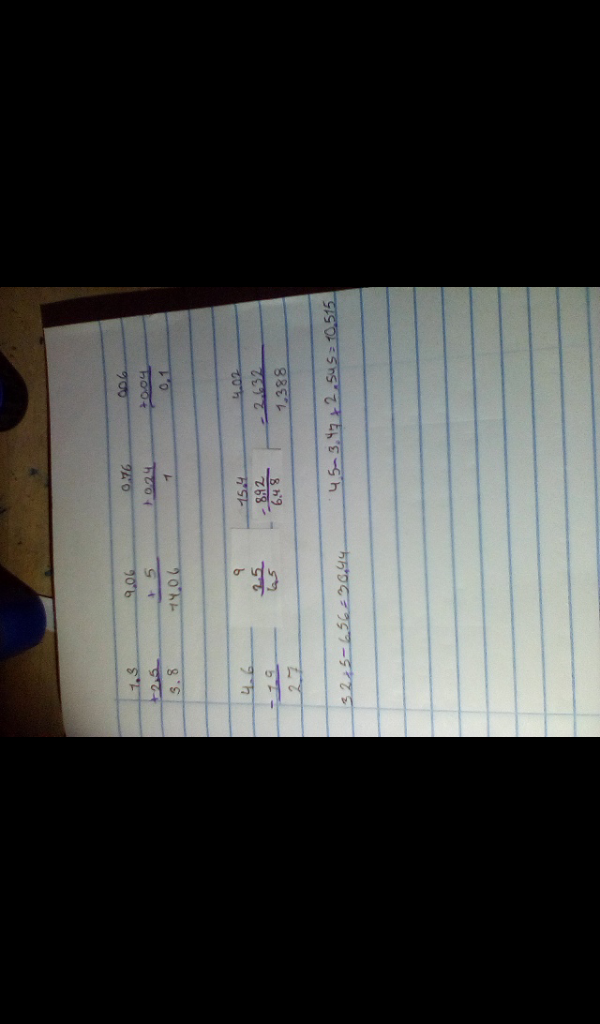 1.3 9.06 0.76 0.06
+2.5 + 5 +0.24 +0.04
3.8 14.06 1 0.1
4.6 9 15.4 4.02
-1.9 2.5 -8.92 -2.632
2.7 6.5 6.48 1.388
32+5-6.56=30.44 4.5-3.47+2.545=10.515